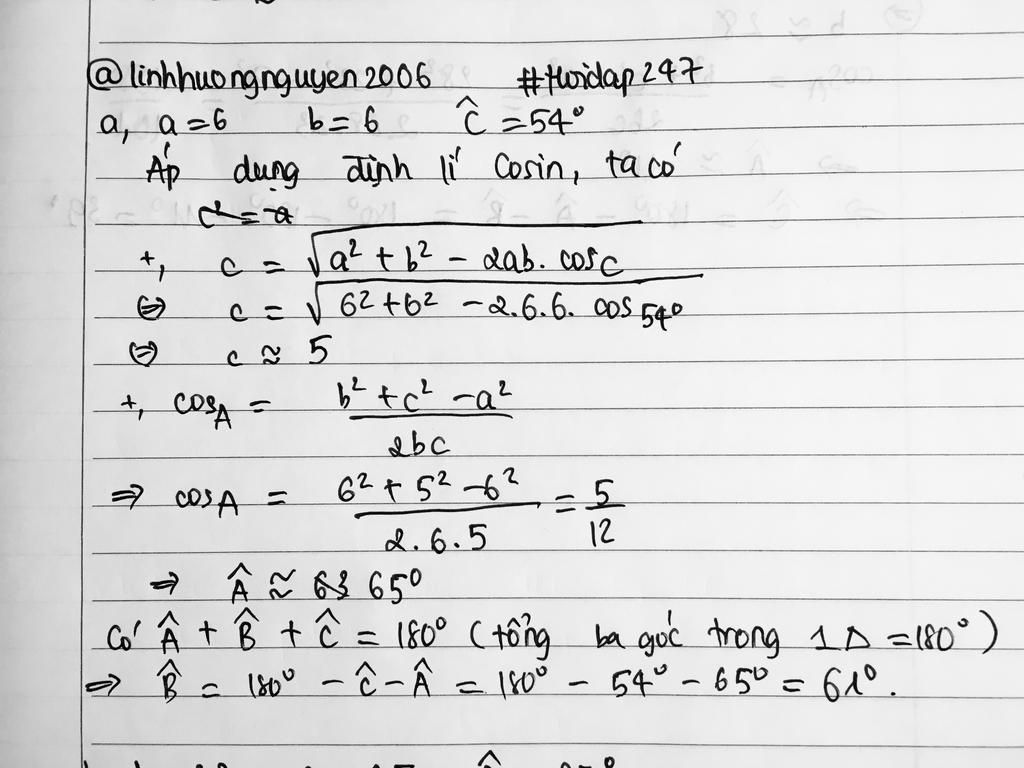 @linhhuongnguyen2006 #hoidap247
a, a = 6 b = 6 Ĉ = 54°
Áp dụng định lí Cosin, ta có
c² = a
+, c = √(a² + b² - 2ab. cos C)
⇔ c = √(6² + 6² - 2.6.6. cos 54°)
⇔ c ≈ 5
+, cos A = (b² + c² - a²)/(2bc)
⇒ cos A = (6² + 5² - 6²)/(2.6.5) = 5/12
⇒ Â ≈ 65°
Có Â + B̂ + Ĉ = 180° (tổng ba góc trong 1 Δ = 180°)
⇒ B̂ = 180° - Ĉ - Â = 180° - 54° - 65° = 61°.